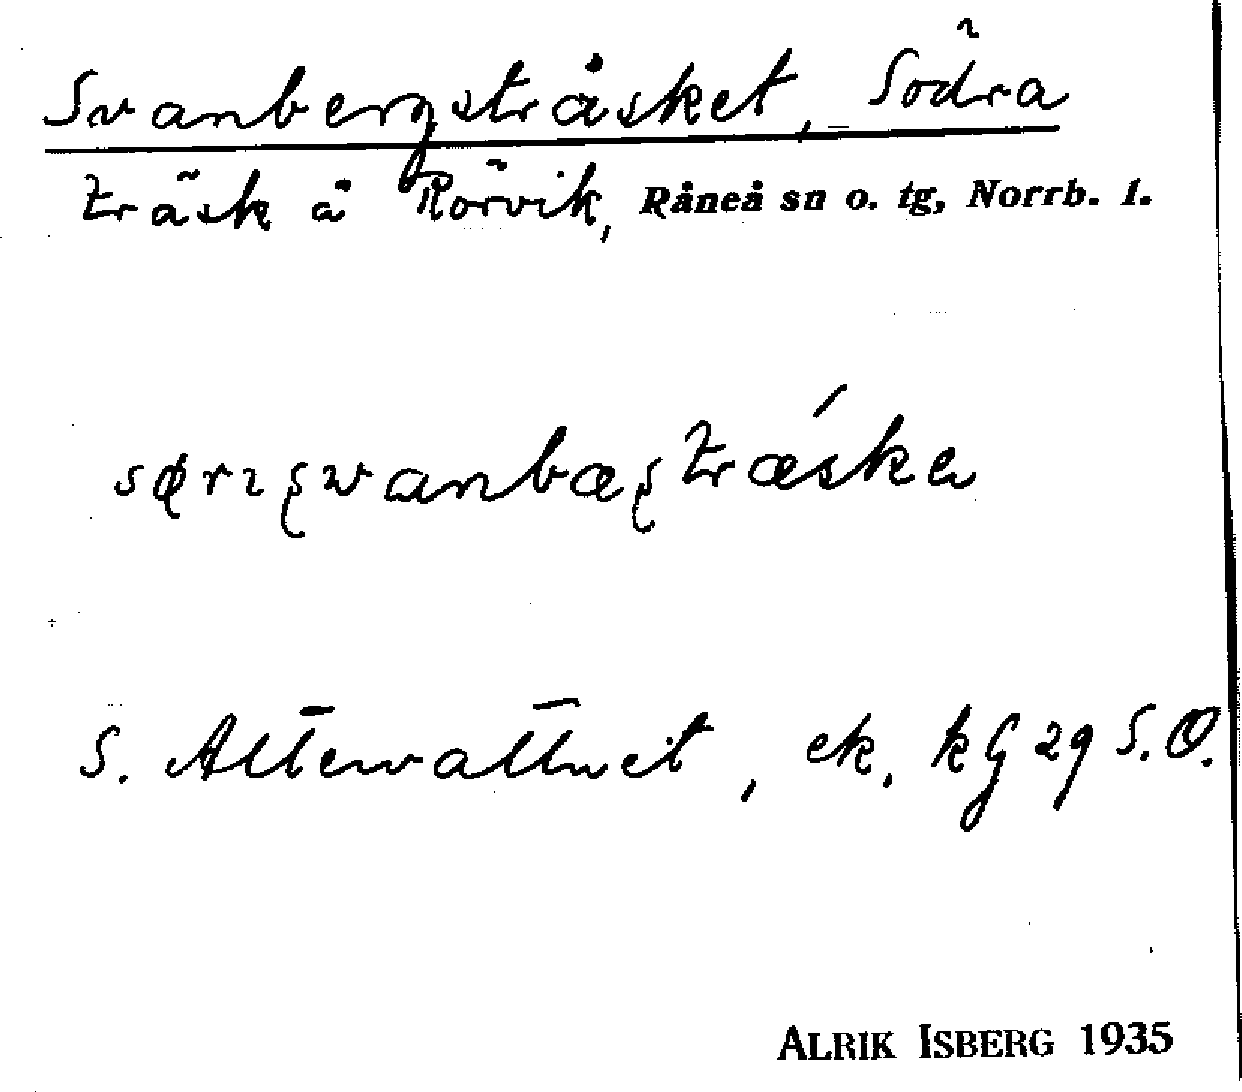 Svanbergsträsket, Södra
träsk å Rörvik, Råneå sn o. tg, Norrb. l.
sørɩʂwanbæʂtrǽska
S. Altervattnet, ek. kG 29 S.O.
ALRIK ISBERG 1935